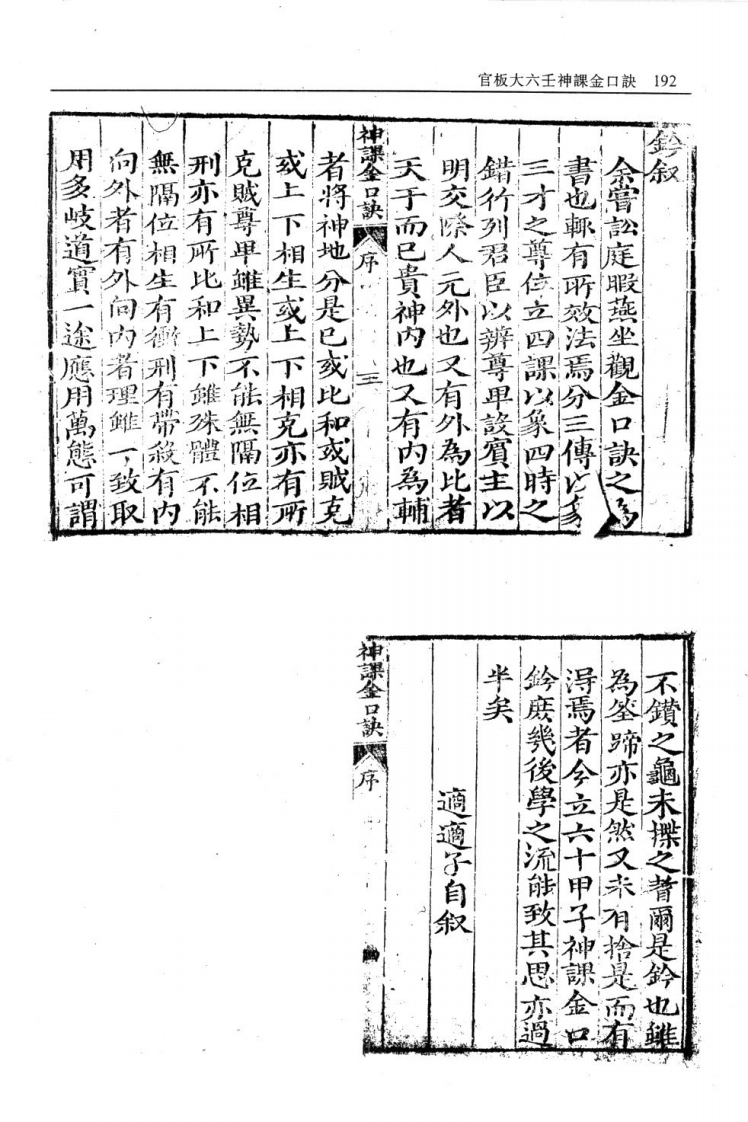 官板大六壬神課金口訣 192
鈐叙
余嘗訟庭暇燕坐觀金口訣之為
書也輙有所效法焉分三傳以象
三才之尊位立四課以象四時之
錯行列君臣以辨尊卑設賓主以
明交際人元外也又有外為比者
天干而已貴神内也又有内為輔
神課金口訣 序 三
者將神地分是已或比和或賊克
或上下相生或上下相克亦有所
克賊尊卑雖異勢不能無隔位相
刑亦有所比和上下雖殊體不能
無隔位相生有衝刑有帶殺有内
向外者有外向内者理雖一致取
用多岐道實一途應用萬態可謂
不鑽之龜未揲之蓍爾是鈐也雖
為筌蹄亦是然又未有捨是而有
淂焉者今立六十甲子神課金口
鈐庶幾後學之流能致其思亦過
半矣
適適子自叙
神課金口訣 序